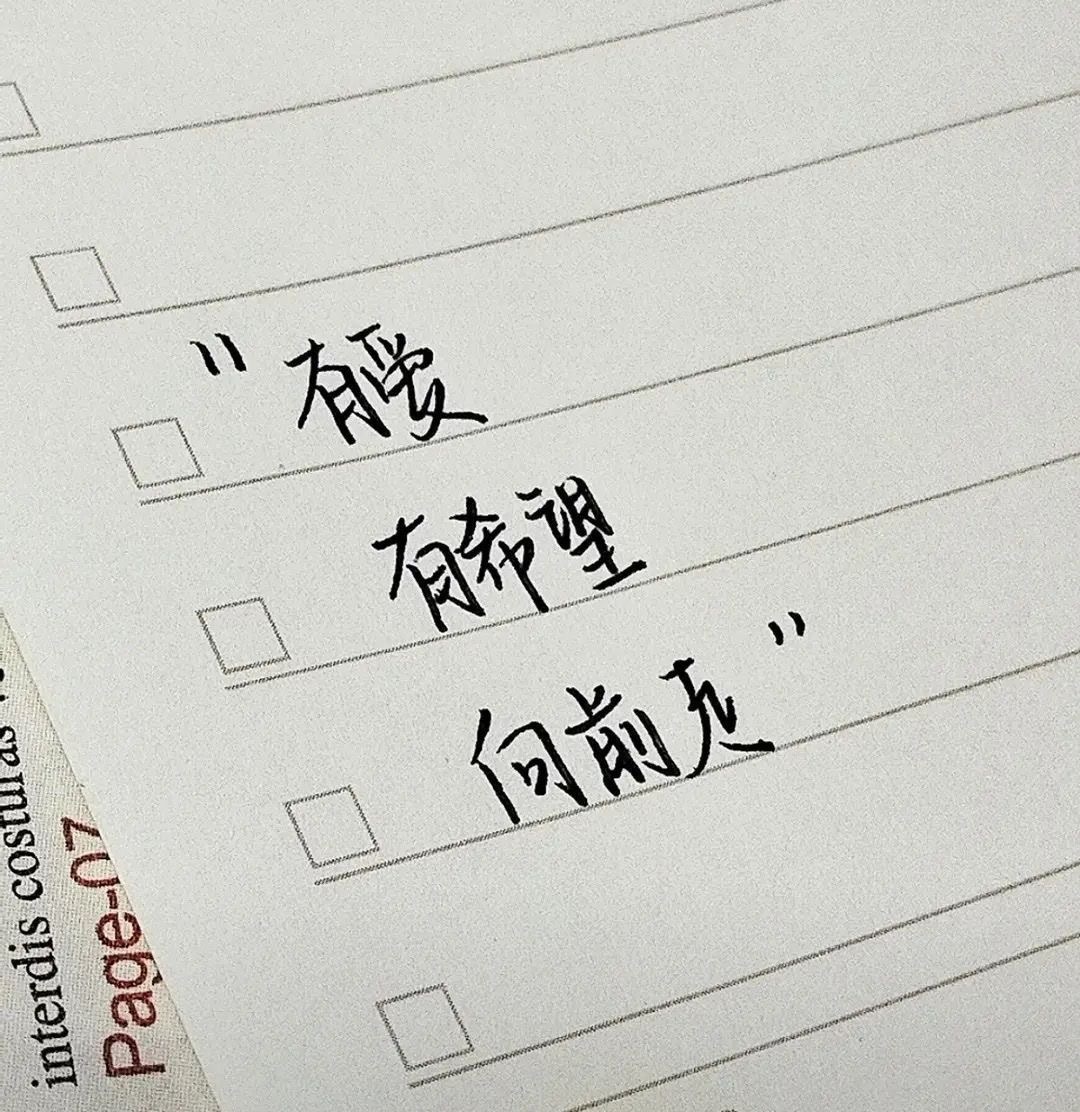 "有爱
有希望
向前走"
interdis costuras
Page-07